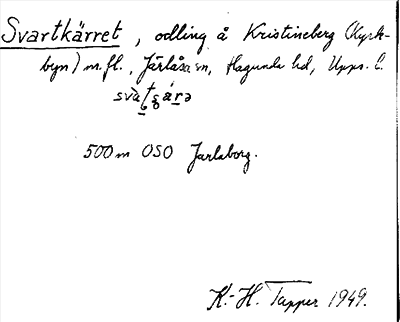 Svartkärret, odling å Kristineberg (Kyrk-
byn) m.fl., Järlåsa sn, Hagunda hd, Upps. l.
500 m OSO Jarlaborg.
K.-H. Tapper 1949.